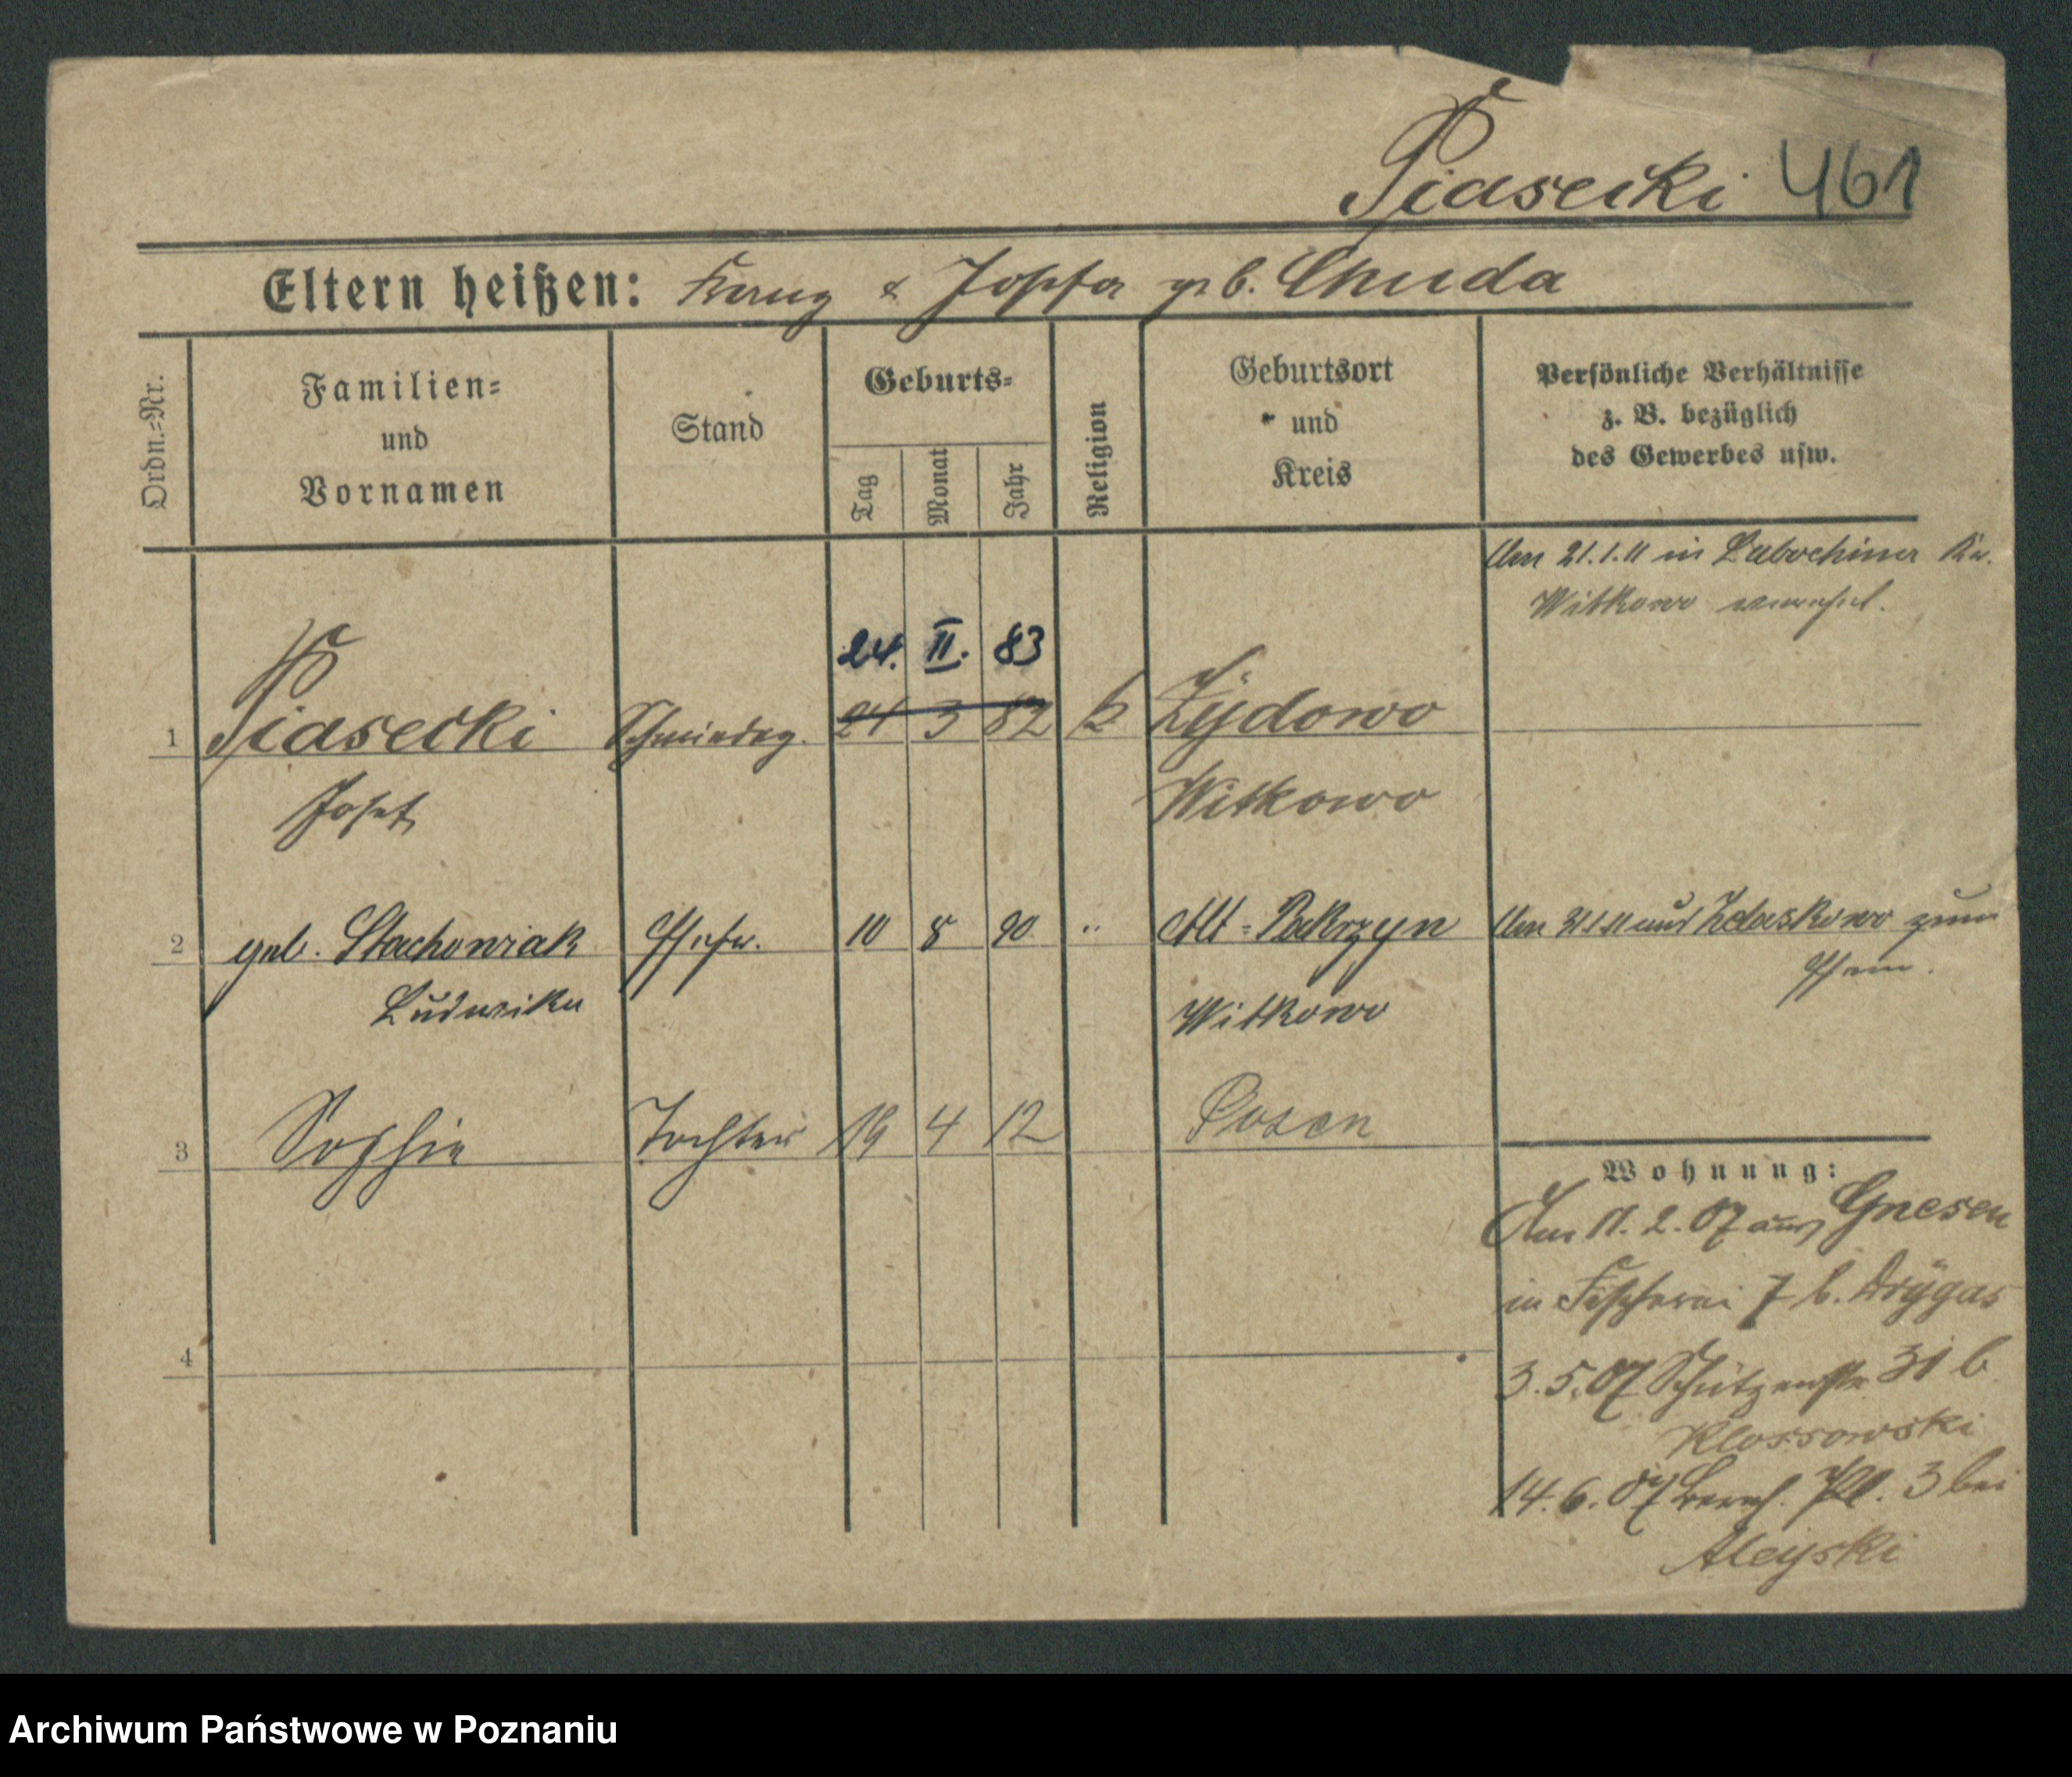 Piasecki 461
Eltern heißen: Franz & Josefa geb. Chuda
Ordn.-Nr.
Familien-
und
Vornamen
Stand
Geburts-
Tag
Monat
Jahr
Religion
Geburtsort
und
Kreis
Persönliche Verhältnisse
z. B. bezüglich
des Gewerbes usw.
Am 21.1.11 in
Witkowo
24. II. 83
1 Piasecki Schmiedeg. 24 3 82 k Żydowo
Josef Witkowo
2 geb. Stachowiak Ehefr. 10 8 90 " Alt-Pokrzyn
Ludwika Witkowo
Am aus Zdaskowo zum
Ehem.
3 Sophie Tochter 19 4 12 Posen
4
Wohnung:
Am 11. 2. 07 aus Gnesen
in Fischerei 7 b. Drygas
3. 5. 07 Schützenstr 31 b
Klossowski
14. 6. 07 Bernh. Pl. 3 bei
Aleyski
Archiwum Państwowe w Poznaniu